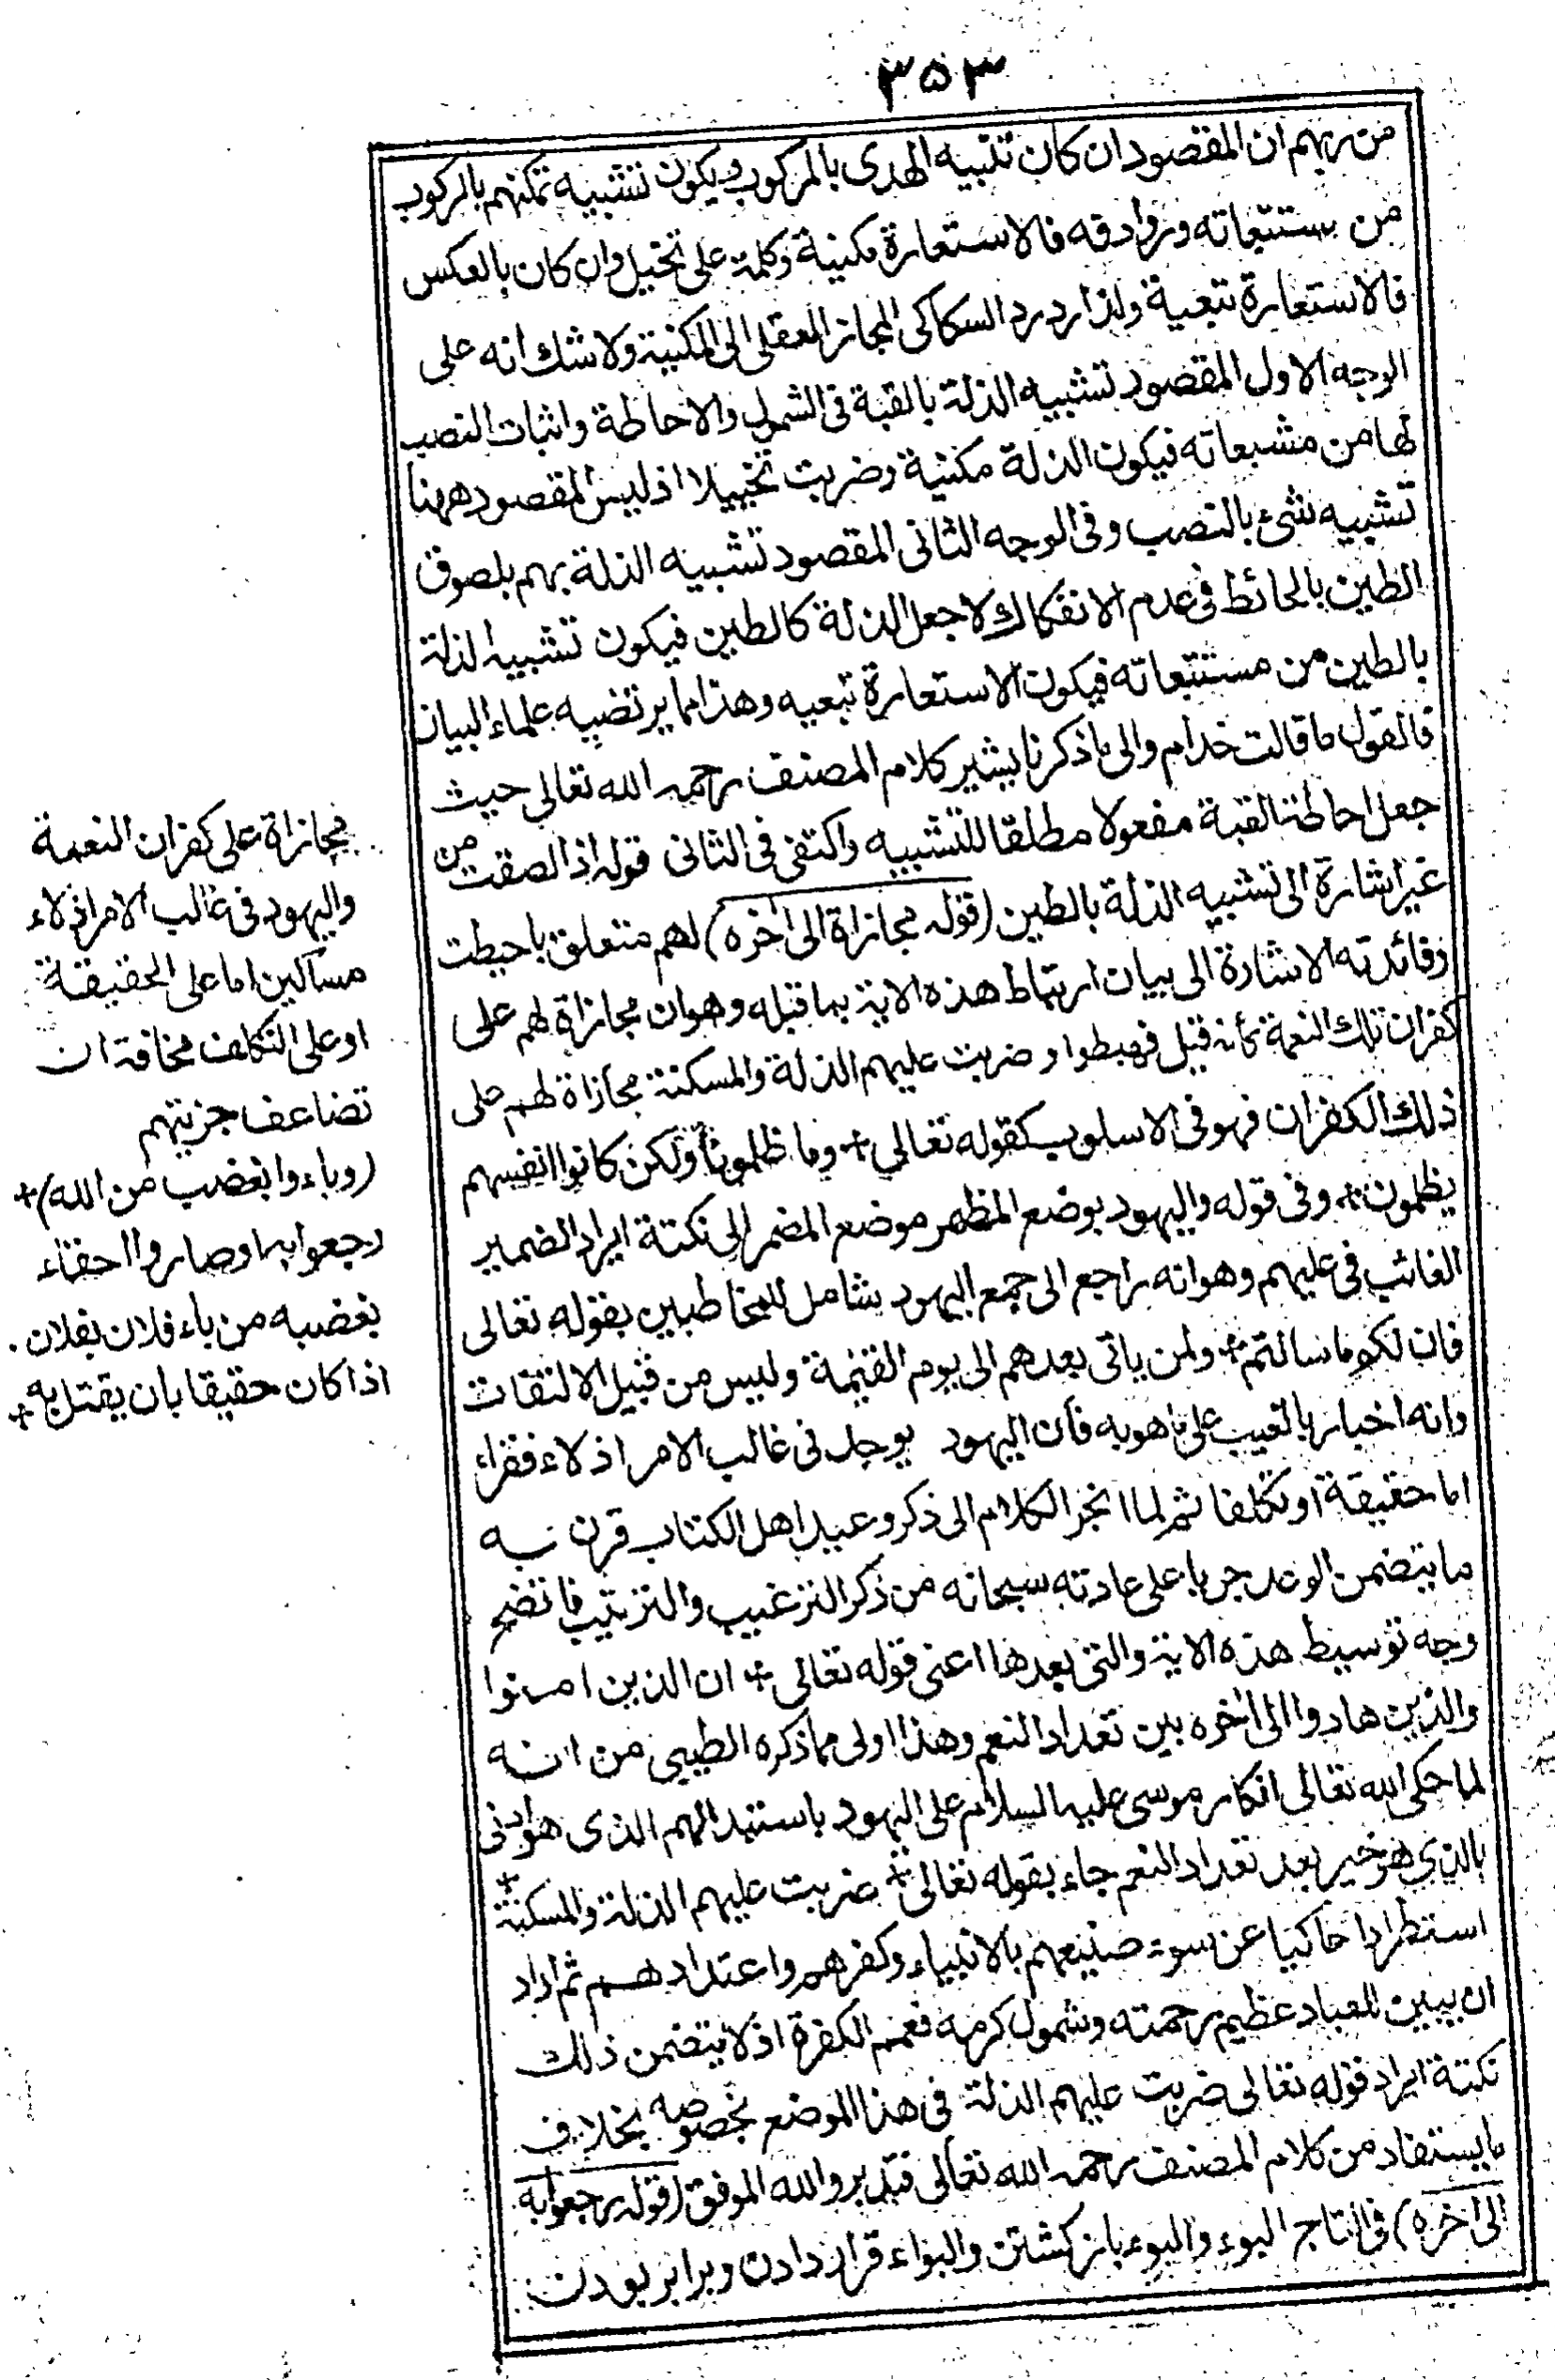 ٣٥٣
من ربهم ان المقصود ان كان تشبيه الهدى بالمركوب ويكون تشبيه تمكنهم بالركوب
من مستتبعاته وروادفه فالاستعارة مكنية وكلمة على تخييل وان كان بالعكس
فالاستعارة تبعية ولذا رد رد السكاكى المجاز العقلى الى المكنية ولا شك انه على
الوجه الاول المقصود تشبيه الذلة بالقبة فى الشمول والاحاطة واثبات الضرب
لها من مستتبعاته فيكون الذلة مكنية وضربت تخييلا اذ ليس المقصود ههنا
تشبيه شئ بالضرب وفى الوجه الثانى المقصود تشبيه الذلة بهم بلصوق
الطين بالحائط فى عدم الانفكاك لا جعل الذلة كالطين فيكون تشبيه الذلة
بالطين من مستتبعاته فيكون الاستعارة تبعيه وهذا مما يرتضيه علماء البيان
فالقول ما قالت حذام والى ما ذكرنا يشير كلام المصنف رحمه الله تعالى حيث
جعل احاطة القبة مفعولا مطلقا للتشبيه واكتفى فى الثانى قوله اذ الصقت من
غير اشارة الى تشبيه الذلة بالطين (قوله مجازاة الى اخره) لهم متعلق باحيطت
وفائدته الاشارة الى بيان ارتباط هذه الاية بما قبله وهو ان مجازاة لهم على
كفران تلك النعمة كأنه قيل فهبطوا وضربت عليهم الذلة والمسكنة مجازاة لهم على
ذلك الكفران فهو فى الاسلوب كقوله تعالى + وما ظلمونا ولكن كانوا انفسهم
يظلمون + وفى قوله واليهود بوضع المظهر موضع المضمر الى نكتة ايراد الضمير
الغائب فى عليهم وهو انه راجع الى جميع اليهود شامل للمخاطبين بقوله تعالى
فان لكم ما سالتم + ولمن ياتى بعدهم الى يوم القيٰمة وليس من قبيل الالتفات
وانه اخبار بالغيب على ما هو به فان اليهود يوجد فى غالب الامر اذلاء فقراء
اما حقيقة او تكلفا ثم لما انجر الكلام الى ذكر وعيد اهل الكتاب قرن به
ما يتضمن الوعد جريا على عادته سبحانه من ذكر الترغيب والترهيب فاتضح
وجه توسيط هذه الاية والتى بعدها اعنى قوله تعالى + ان الذين امنوا
والذين هادوا الى اخره بين تعداد النعم وهذا اولى مما ذكره الطيبى من انه
لما حكى الله تعالى انكار موسى عليه السلام على اليهود باستبدالهم الذى هو ادنى
بالذى هو خير بعد تعداد النعم جاء بقوله تعالى + ضربت عليهم الذلة والمسكنة +
استطرادا حاكيا عن سوء صنيعهم بالانبياء وكفرهم واعتدادهم ثم اراد
ان يبين للعباد عظيم رحمته وشمول كرمه فعمم الكفرة اذ لا يتضمن ذلك
نكتة ايراد قوله تعالى ضربت عليهم الذلة فى هذا الموضع بخصوصه بخلاف
ما يستفاد من كلام المصنف رحمه الله تعالى فتدبر والله الموفق (قوله رجعوا به
الى اخره) فى التاج البوء والبوء باز كشتن والبواء قرار دادن وبرابر بودن
مجازاة على كفران النعمة
واليهود فى غالب الامر اذلاء
مساكين اما على الحقيقة
او على التكلف مخافة ان
تضاعف جزيتهم
(وباءوا بغضب من الله) +
رجعوا به او صاروا احقاء
بغضبه من باء فلان بفلان .
اذا كان حقيقا بان يقتل به +